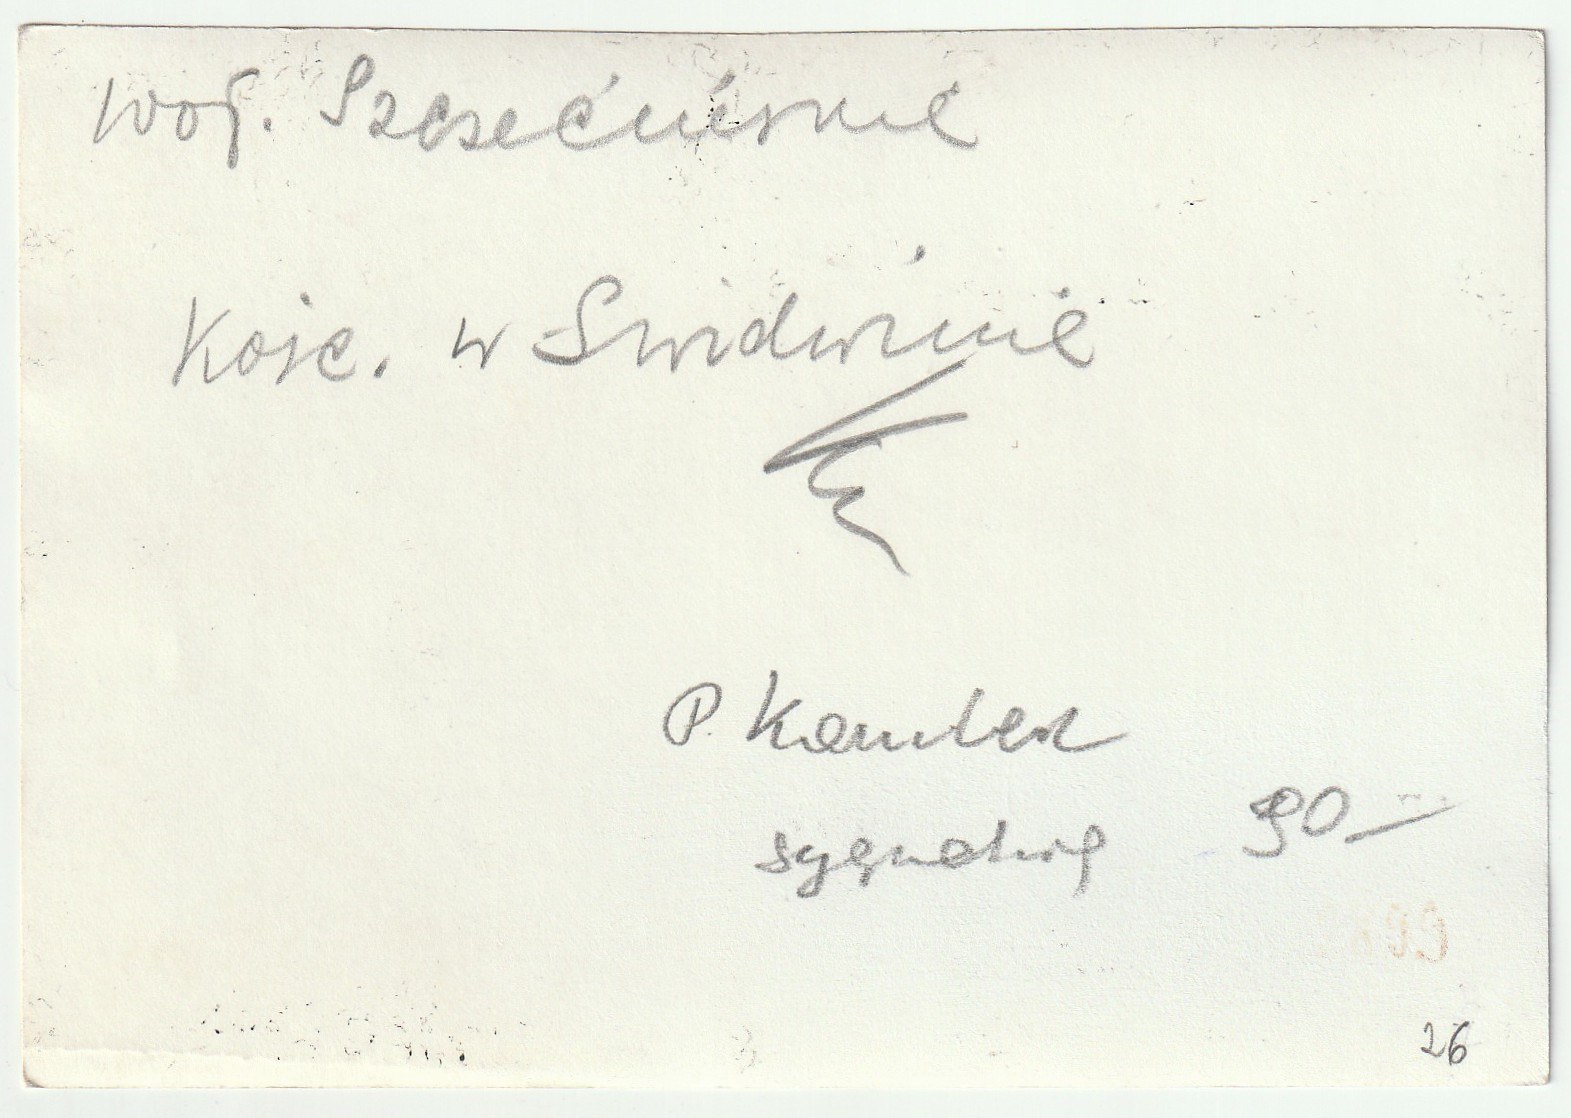 woj. Szczecińskie
Kośc. w Świdwinie
P. Kamler
sygnatury 90 —
26